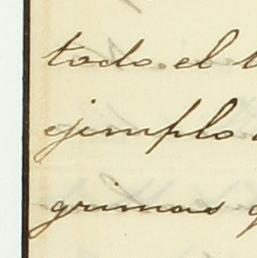 todo el
ejemplo
grimas